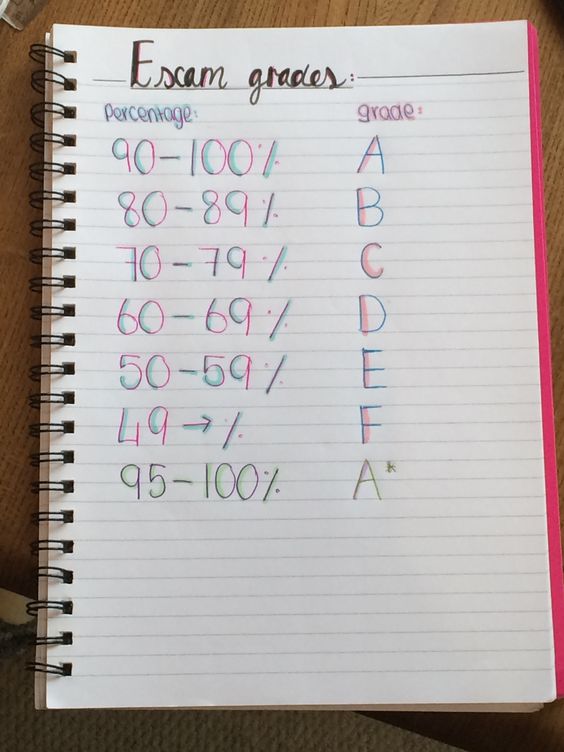 Escam grades:
percentage: grade:
90-100% A
80-89% B
70-79% C
60-69% D
50-59% E
49→% F
95-100% A*